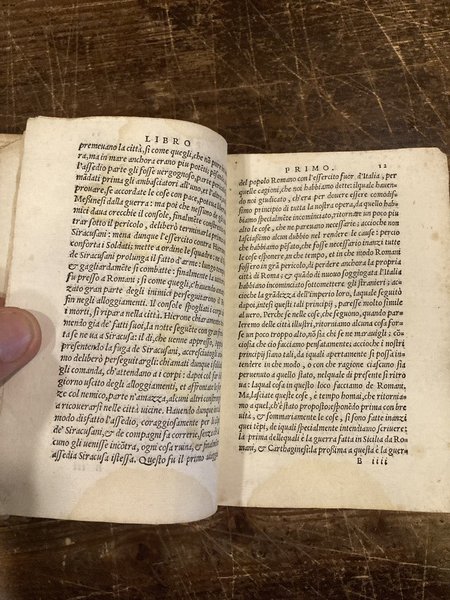 LIBRO
premeuano la città, si come quegli, che nõ pur in ter
ra, ma in mare anchora erano piu potẽti; pẽsando che
l'assedio parte gli fosse vergognoso, parte pericoloso;
mãdati prima gli ambasciatori all'uno, et l'altro, per
prouare, se accordate le cose con pace, potessero
Messenesi dalla guerra: ma poi che nessun de nimici
mici daua orecchie il consolo, finalmẽte costretto
trar sotto il pericolo, deliberò terminarla prima
Siracusani: mena dunque l'essercito contra Hierone
conforta i Soldati; mette a ordine le squadre:
de Siracusani prolunga il fatto d'arme: lungamente
& gagliardamẽte si combatte: finalmẽte la uittoria
fu appresso a Romani: si come quegli, che haueuano
azato gran parte dei inimici perseguitarono gli altri
fin negli alloggiamenti. Il consolo spogliati i corpi
i morti, si ripara nella città. Hierone chiamandosi
mendo già de' fatti suoi, la notte seguẽte con gran fret
ta se ne ua a Siracusa: il dì, che uenne appresso, appio
presentiendo la fuga de Siracusani, accresciutogli ani
mo deliberò perseguitargli: chiamati dunque i soldati
gli comanda, ch'attendano a i corpi: dapoi quel
giorno uscito degli alloggiamenti, & uenuto alle for
ze col nemico, parte n'amazza, alcuni altri costringe
a ricouerarsi nelle città uicine. Hauendo dunque in tal
modo disfatto l'assedio, coraggiosamente per la uittoria
de Siracusani, & de compagni fa correrie, spogliando
ogni uenisse incõtra, ogni cosa ruina, & finalmente
assedia Siracusa istessa. Questo fu il primo uiaggio
PRIMO. 12
del popolo Romano con l'essercito fuor d'Italia, per
quelle cagioni, che noi habbiamo dette: il quale hauen
do noi giudicato, ch'era per douere essere comodissi
mo principio di tutta la nostra opera, da quello hab
biamo specialmẽte incominciato, ritornati un poco piu
alto le cose, che ne pareuano necessarie; accioche non
lasciassimo alcun dubbio nel rendere le cause: per
che habbiamo pẽsato, che fosse necessario inanzi tutte
le cose intẽdere, in che tempo, & in che modo Romani
fossero in grã pericolo, di perdere anchora la propria
città di Roma; & quãdo de nuouo soggiogata l'Italia
habbiano incominciato sottomettere gli stranieri; ac
cioche la grãdezza dell'imperio loro, la quale dapoi se
guì, intesi questi tali principij, paresse piu simile al
uero. Perche se nelle cose, che seguono, quando parla
remo delle città illustri, ritorniamo alcuna cosa forse
un poco troppo alto, non è che alcuno se ne marauigli;
cõciosia che ciò facciamo pensatamente; accioche i nostri
principij siano tali, da i quali apertamente si possa in
tendere in che modo, o con che ragione ciascun sia
peruenuto a quello stato, nelquale al presente si ritro
ua: laqual cosa in questo loco facciamo de Romani.
Ma, lasciate queste cose, è tempo homai, che ritorniamo
a quel, ch'è stato proposito; esponẽdo prima con breui
tà, & sommariamente le cose, che si sono fatte inanzi
quei tẽpi, de i quali specialmente intendiamo scriuere:
la prima delle quali è la guerra fatta in Sicilia da Ro
mani, & Carthaginesi: la prossima a questa è la guerra
B iiii